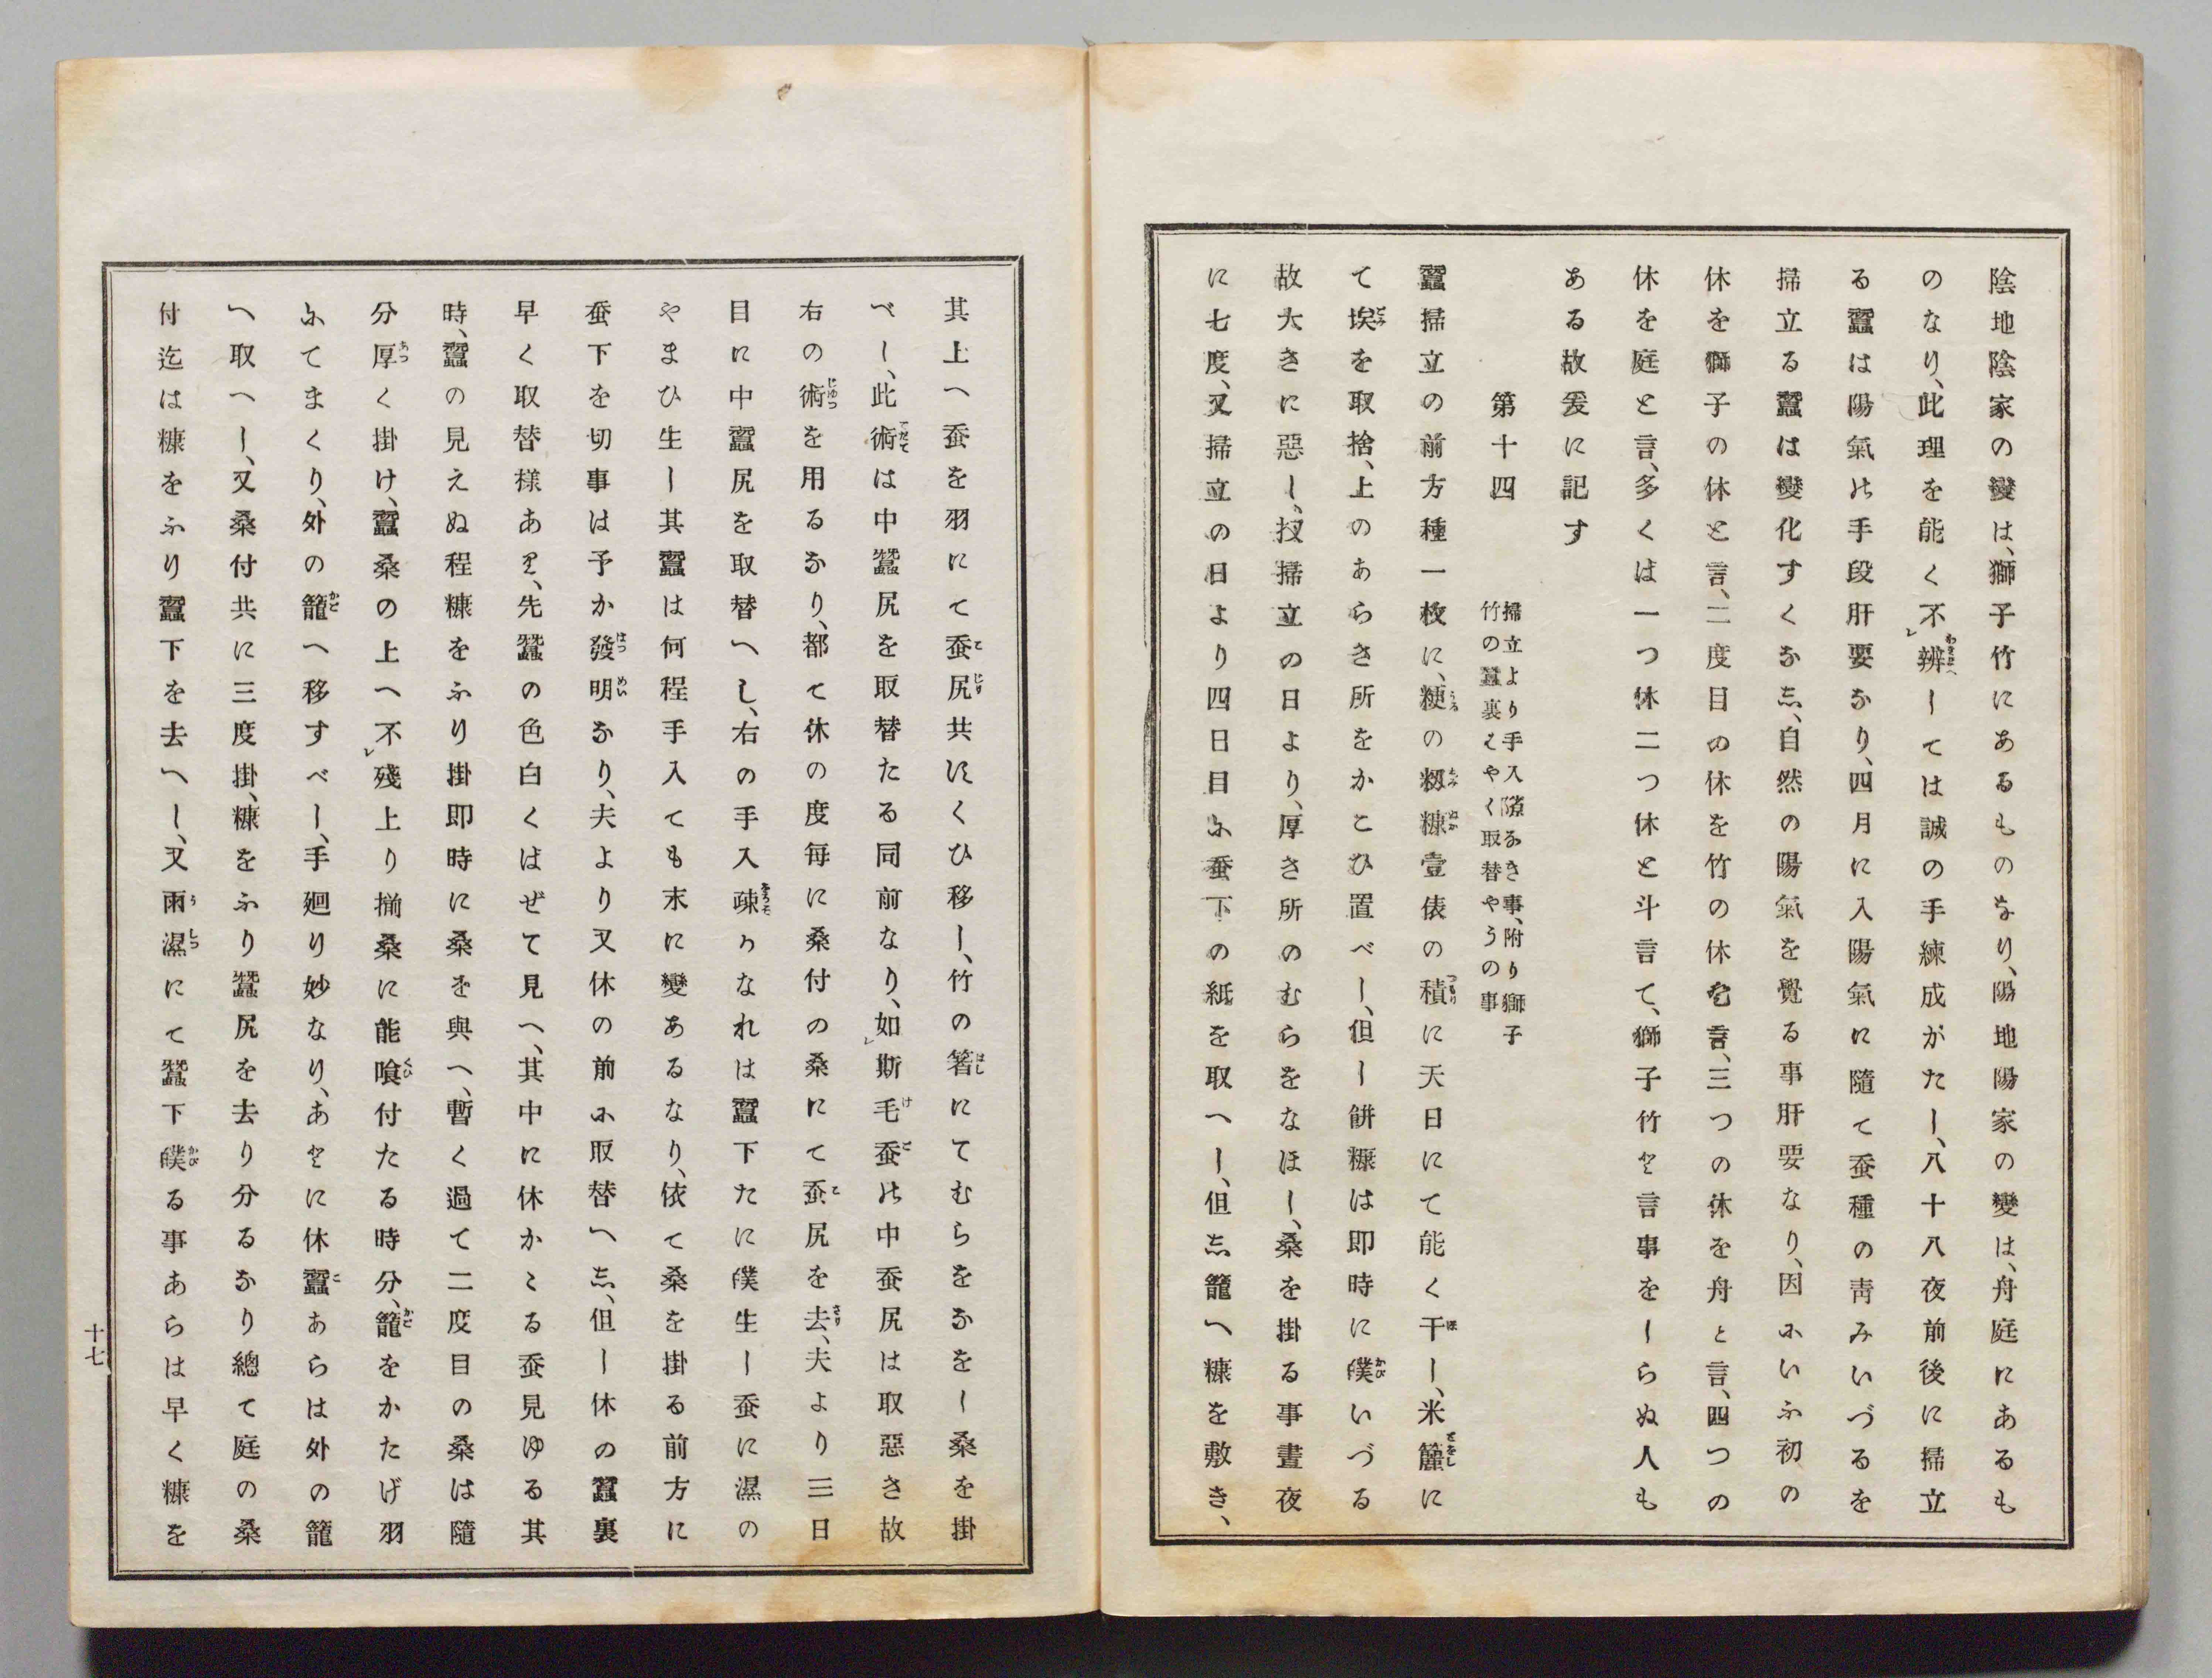 陰地陰家の變は、獅子竹にあるものなり、陽地陽家の變は、舟庭にあるも
のなり、此理を能く不レ辨しては誠の手練成がたし、八十八夜前後に掃立
る蠶は陽氣の手段肝要なり、四月に入陽氣に隨て蚕種の靑みいづるを
掃立る蠶は變化すくなし、自然の陽氣を覺る事肝要なり、因にいふ初の
休を獅子の休と言、二度目の休を竹の休を言、三つの休を舟と言、四つの
休を庭と言、多くは一つ休二つ休と斗言て、獅子竹と言事をしらぬ人も
ある故爰に記す
第十四
掃立より手入隙なき事、附り獅子
竹の蠶裏はやく取替やうの事
蠶掃立の前方種一枚に、粳の籾糠壹俵の積に天日にて能く干し、米簁に
て埃を取捨、上のあらき所をかこひ置べし、但し餅糠は即時に㒒いづる
故大きに惡し、扨掃立の日より、厚き所のむらをなほし、桑を掛る事晝夜
に七度、又掃立の日より四日目に蚕下の紙を取へし、但し籠へ糠を敷き、
其上へ蚕を羽にて蚕尻共にくひ移し、竹の箸にてむらをなをし桑を掛
べし、此術は中蠶尻を取替たる同前なり、如レ斯毛蚕の中蚕尻は取惡き故
右の術を用るなり、都て休の度每に桑付の桑にて蚕尻を去、夫より三日
目に中蠶尻を取替へし、右の手入疎かなれは蠶下たに㒒生し蚕に濕の
やまひ生し其蠶は何程手入ても末に變あるなり、依て桑を掛る前方に
蚕下を切事は予か發明なり、夫より又休の前に取替へし、但し休の蠶裏
早く取替樣あり、先蠶の色白くはぜて見へ、其中に休かゝる蚕見ゆる其
時、蠶の見えぬ程糠をふり掛即時に桑を與へ、暫く過て二度目の桑は隨
分厚く掛け、蠶桑の上へ不レ殘上り揃桑に能喰付たる時分、籠をかたげ羽
にてまくり、外の籠へ移すべし、手廻り妙なり、あとに休蠶あらは外の籠
へ取へし、又桑付共に三度掛、糠をふり蠶尻を去り分るなり總て庭の桑
付迄は糠をふり蠶下を去へし、又雨濕にて蠶下㒒る事あらは早く糠を
十七